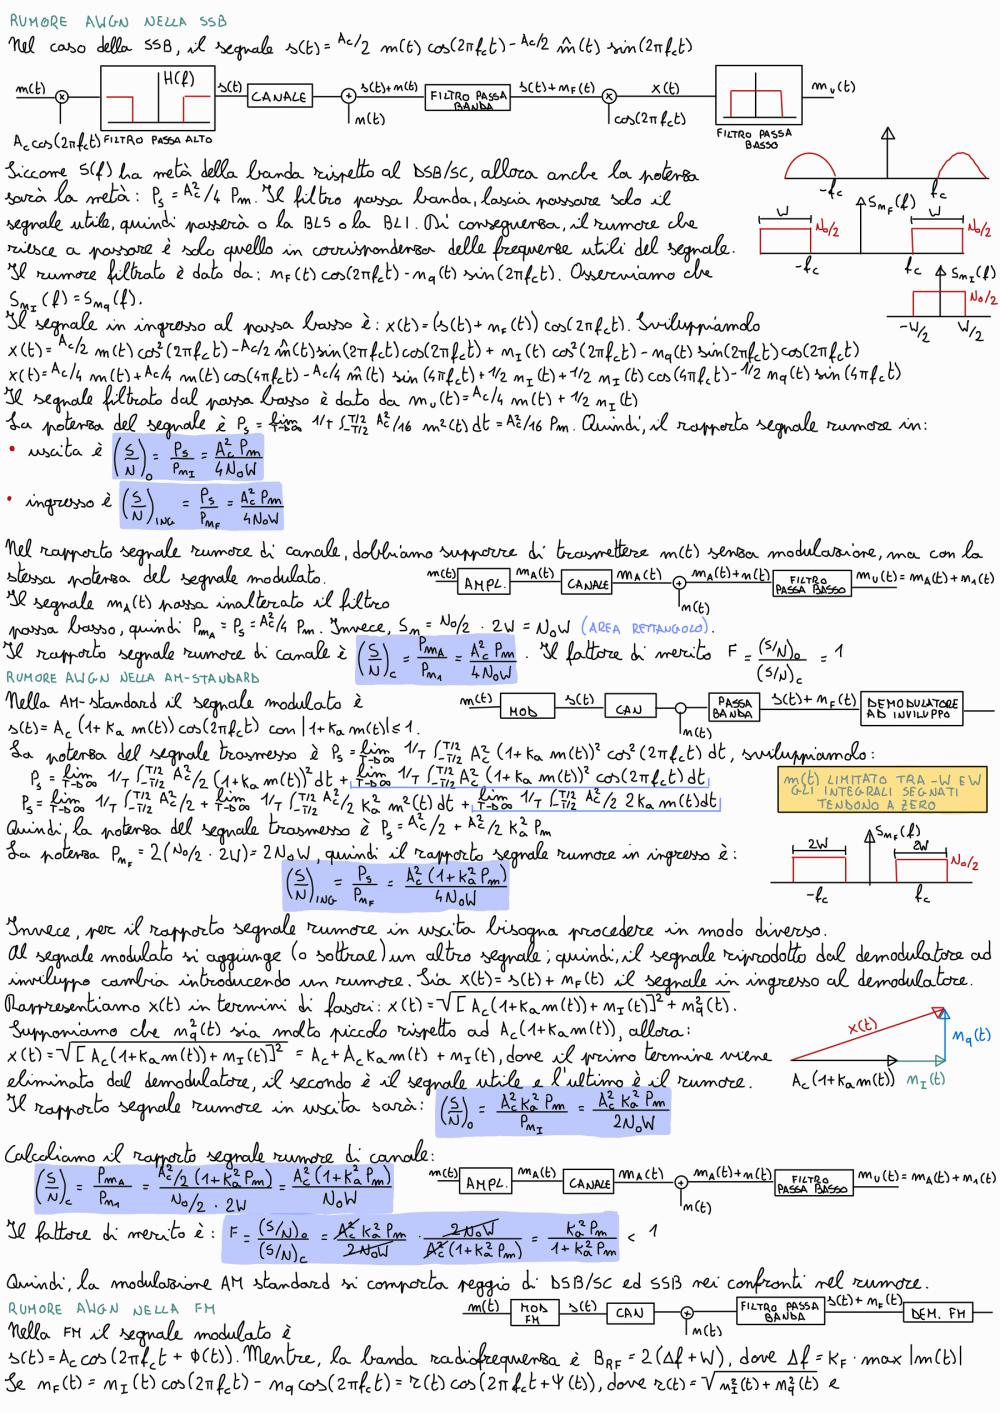 RUMORE AWGN NELLA SSB
Nel caso della SSB, il segnale s(t) = Ac/2 m(t) cos(2πfct) - Ac/2 m̂(t) sin(2πfct)
m(t) H(f) s(t) CANALE s(t)+n(t) FILTRO PASSA BANDA s(t)+nF(t) x(t) mu(t)
Ac cos(2πfct) FILTRO PASSA ALTO n(t) cos(2πfct) FILTRO PASSA BASSO
Siccome S(f) ha metà della banda rispetto al DSB/SC, allora anche la potenza
sarà la metà: Ps = Ac²/4 Pm. Il filtro passa banda, lascia passare solo il
segnale utile, quindi passerà o la BLS o la BLI. Di conseguenza, il rumore che
riesce a passare è solo quello in corrispondenza delle frequenze utili del segnale.
Il rumore filtrato è dato da: nF(t) cos(2πfct) - nq(t) sin(2πfct). Osserviamo che
SnI(f) = Snq(f).
-fc fc
W SnF(f) W
No/2 No/2
-fc fc
SnI(f)
No/2
-W/2 W/2
Il segnale in ingresso al passa basso è: x(t) = (s(t) + nF(t)) cos(2πfct). Sviluppiamolo
x(t) = Ac/2 m(t) cos²(2πfct) - Ac/2 m̂(t) sin(2πfct) cos(2πfct) + nI(t) cos²(2πfct) - nq(t) sin(2πfct) cos(2πfct)
x(t) = Ac/4 m(t) + Ac/4 m(t) cos(4πfct) - Ac/4 m̂(t) sin(4πfct) + 1/2 nI(t) + 1/2 nI(t) cos(4πfct) - 1/2 nq(t) sin(4πfct)
Il segnale filtrato dal passa basso è dato da mu(t) = Ac/4 m(t) + 1/2 nI(t)
La potenza del segnale è Ps = lim T→∞ 1/T ∫-T/2 T/2 Ac²/16 m²(t) dt = Ac²/16 Pm. Quindi, il rapporto segnale rumore in:
• uscita è (S/N)o = Ps/PnI = Ac² Pm/4NoW
• ingresso è (S/N)ING = Ps/PnF = Ac² Pm/4NoW
Nel rapporto segnale rumore di canale, dobbiamo supporre di trasmettere m(t) senza modulazione, ma con la
stessa potenza del segnale modulato.
m(t) AMPL. mA(t) CANALE mA(t) mA(t)+n(t) FILTRO PASSA BASSO mu(t) = mA(t)+n1(t)
n(t)
Il segnale mA(t) passa inalterato il filtro
passa basso, quindi PmA = Ps = Ac²/4 Pm. Invece, Sn = No/2 · 2W = NoW (AREA RETTANGOLO).
Il rapporto segnale rumore di canale è (S/N)c = PmA/Pn1 = Ac² Pm/4NoW . Il fattore di merito F = (S/N)o/(S/N)c = 1
RUMORE AWGN NELLA AM-STANDARD
Nella AM-standard il segnale modulato è
m(t) MOD s(t) CAN PASSA BANDA s(t) + nF(t) DEMODULATORE AD INVILUPPO
n(t)
s(t) = Ac (1+Ka m(t)) cos(2πfct) con |1+Ka m(t)| ≤ 1.
La potenza del segnale trasmesso è Ps = lim T→∞ 1/T ∫-T/2 T/2 Ac² (1+Ka m(t))² cos²(2πfct) dt, sviluppiamolo:
Ps = lim T→∞ 1/T ∫-T/2 T/2 Ac²/2 (1+Ka m(t))² dt + lim T→∞ 1/T ∫-T/2 T/2 Ac² (1+Ka m(t))² cos(2πfct) dt
Ps = lim T→∞ 1/T ∫-T/2 T/2 Ac²/2 + lim T→∞ 1/T ∫-T/2 T/2 Ac²/2 Ka² m²(t) dt + lim T→∞ 1/T ∫-T/2 T/2 Ac²/2 2Ka m(t) dt
m(t) LIMITATO TRA -W E W
GLI INTEGRALI SEGNATI
TENDONO A ZERO
Quindi, la potenza del segnale trasmesso è Ps = Ac²/2 + Ac²/2 Ka² Pm
La potenza PnF = 2(No/2 · 2W) = 2NoW, quindi il rapporto segnale rumore in ingresso è:
(S/N)ING = Ps/PnF = Ac² (1+Ka² Pm)/4NoW
2W SnF(f) 2W
No/2
-fc fc
Invece, per il rapporto segnale rumore in uscita bisogna procedere in modo diverso.
Al segnale modulato si aggiunge (o sottrae) un altro segnale; quindi, il segnale riprodotto dal demodulatore ad
inviluppo cambia introducendo un rumore. Sia x(t) = s(t) + nF(t) il segnale in ingresso al demodulatore.
Rappresentiamo x(t) in termini di fasori: x(t) = √[Ac(1+Ka m(t)) + nI(t)]² + nq²(t).
Supponiamo che nq²(t) sia molto piccolo rispetto ad Ac(1+Ka m(t)), allora:
x(t) = √[Ac(1+Ka m(t)) + nI(t)]² = Ac + Ac Ka m(t) + nI(t), dove il primo termine viene
eliminato dal demodulatore, il secondo è il segnale utile e l'ultimo è il rumore.
x(t) nq(t)
Ac(1+Ka m(t)) nI(t)
Il rapporto segnale rumore in uscita sarà: (S/N)o = Ac² Ka² Pm/PnI = Ac² Ka² Pm/2NoW
Calcoliamo il rapporto segnale rumore di canale:
(S/N)c = PmA/Pn1 = Ac²/2 (1+Ka² Pm)/No/2 · 2W = Ac² (1+Ka² Pm)/NoW
m(t) AMPL. mA(t) CANALE mA(t) mA(t)+n(t) FILTRO PASSA BASSO mu(t) = mA(t)+n1(t)
n(t)
Il fattore di merito è: F = (S/N)o/(S/N)c = Ac² Ka² Pm/2NoW · 2NoW/Ac²(1+Ka² Pm) = Ka² Pm/1+Ka² Pm < 1
Quindi, la modulazione AM standard si comporta peggio di DSB/SC ed SSB nei confronti nel rumore.
RUMORE AWGN NELLA FM
m(t) MOD FM s(t) CAN FILTRO PASSA BANDA s(t)+nF(t) DEM. FM
n(t)
Nella FM il segnale modulato è
s(t) = Ac cos(2πfct + Φ(t)). Mentre, la banda radiofrequenza è BRF = 2(Δf + W), dove Δf = KF · max |m(t)|
Se nF(t) = nI(t) cos(2πfct) - nq cos(2πfct) = r(t) cos(2πfct + Ψ(t)), dove r(t) = √nI²(t) + nq²(t) e